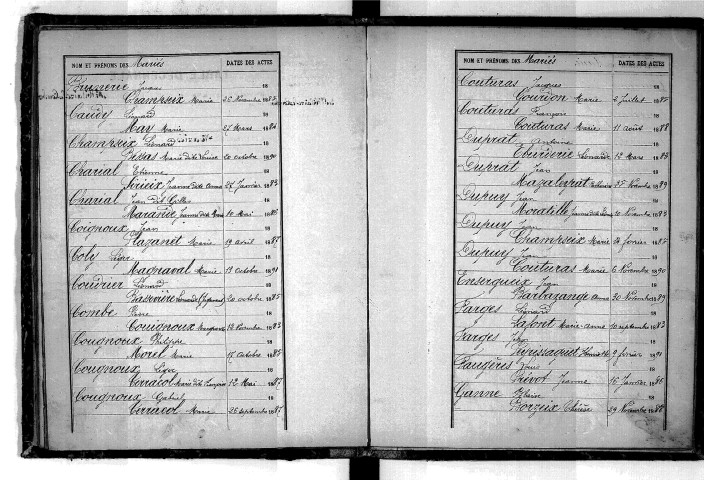 NOM ET PRÉNOMS DES Mariés DATES DES ACTES
Brunerie 18
Champseix Marie 25 Novembre 18
Caudy Léonard 18
May Marie 27 Mars 1886
Champseix Léonard
Bessas Marie dite Louise 20 octobre 1890
Charial Etienne 18
Sorieix Jeanne dite Anna 27 Janvier 1883
Charial Jean dit Gilles 18
Marande Jeanne dite Marie 10 Mai 18
Coignoux Jean 18
Plazanet Marie 19 avril 1887
Coly Léger 18
Magnaval Marie 19 octobre 1891
Coudrier Léonard 18
20 octobre 1885
Combe Pierre 18
Couignoux Marguerite 18 Novembre 1883
Cougnoux Philippe 18
Morel Marie 17 octobre 18
Cougnoux Léger 18
Marie dite 12 Mai 1887
Cougnoux Gabriel 18
Marie 26 septembre 1887
NOM ET PRÉNOMS DES Mariés DATES DES ACTES
Couturas Jacques 18
Gourdon Marie 2 Juillet 1885
Couturas François 18
Couturas Marie 11 août 1888
Duprat Antoine 18
Léonarde 12 Mars 1883
Duprat Jean 18
Mazaleyrat 25 Novembre 1889
Dupuy Jean 18
Moratille Jeanne dite 10 Novembre 1883
Dupuy Jean 18
Champseix Marie 24 février 1887
Dupuy Jean 18
Couturas Marie 6 Novembre 1890
Ensergueix Jean 18
Barbazange Anna 30 Novembre 1889
Farges Léonard 18
Lafont Marie-Anne 10 septembre 1883
Farges Léger 18
Peyrissaguet 9 février 1891
Faugères Louis 18
Prévot Jeanne 16 Janvier 1886
Ganne Blaise 18
Borzeix Thérèse 29 Novembre 1888